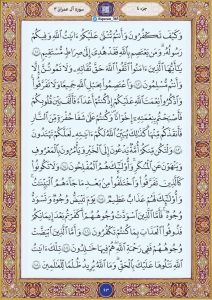 جزء ٤
سورة آل عمران ٣
وَكَيْفَ تَكْفُرُونَ وَأَنتُمْ تُتْلَىٰ عَلَيْكُمْ ءَايَٰتُ ٱللَّهِ وَفِيكُمْ
رَسُولُهُۥ وَمَن يَعْتَصِم بِٱللَّهِ فَقَدْ هُدِىَ إِلَىٰ صِرَٰطٍ مُّسْتَقِيمٍ ١٠١
يَٰٓأَيُّهَا ٱلَّذِينَ ءَامَنُوا۟ ٱتَّقُوا۟ ٱللَّهَ حَقَّ تُقَاتِهِۦ وَلَا تَمُوتُنَّ إِلَّا
وَأَنتُم مُّسْلِمُونَ ١٠٢ وَٱعْتَصِمُوا۟ بِحَبْلِ ٱللَّهِ جَمِيعًا وَلَا تَفَرَّقُوا۟
وَٱذْكُرُوا۟ نِعْمَتَ ٱللَّهِ عَلَيْكُمْ إِذْ كُنتُمْ أَعْدَآءً فَأَلَّفَ بَيْنَ قُلُوبِكُمْ
فَأَصْبَحْتُم بِنِعْمَتِهِۦٓ إِخْوَٰنًا وَكُنتُمْ عَلَىٰ شَفَا حُفْرَةٍ مِّنَ ٱلنَّارِ
فَأَنقَذَكُم مِّنْهَا كَذَٰلِكَ يُبَيِّنُ ٱللَّهُ لَكُمْ ءَايَٰتِهِۦ لَعَلَّكُمْ تَهْتَدُونَ ١٠٣
وَلْتَكُن مِّنكُمْ أُمَّةٌ يَدْعُونَ إِلَى ٱلْخَيْرِ وَيَأْمُرُونَ بِٱلْمَعْرُوفِ
وَيَنْهَوْنَ عَنِ ٱلْمُنكَرِ وَأُو۟لَٰٓئِكَ هُمُ ٱلْمُفْلِحُونَ ١٠٤ وَلَا تَكُونُوا۟
كَٱلَّذِينَ تَفَرَّقُوا۟ وَٱخْتَلَفُوا۟ مِنۢ بَعْدِ مَا جَآءَهُمُ ٱلْبَيِّنَٰتُ
وَأُو۟لَٰٓئِكَ لَهُمْ عَذَابٌ عَظِيمٌ ١٠٥ يَوْمَ تَبْيَضُّ وُجُوهٌ وَتَسْوَدُّ
وُجُوهٌ فَأَمَّا ٱلَّذِينَ ٱسْوَدَّتْ وُجُوهُهُمْ أَكَفَرْتُم بَعْدَ إِيمَٰنِكُمْ
فَذُوقُوا۟ ٱلْعَذَابَ بِمَا كُنتُمْ تَكْفُرُونَ ١٠٦ وَأَمَّا ٱلَّذِينَ ٱبْيَضَّتْ
وُجُوهُهُمْ فَفِى رَحْمَةِ ٱللَّهِ هُمْ فِيهَا خَٰلِدُونَ ١٠٧ تِلْكَ ءَايَٰتُ
ٱللَّهِ نَتْلُوهَا عَلَيْكَ بِٱلْحَقِّ وَمَا ٱللَّهُ يُرِيدُ ظُلْمًا لِّلْعَٰلَمِينَ ١٠٨
٦٣